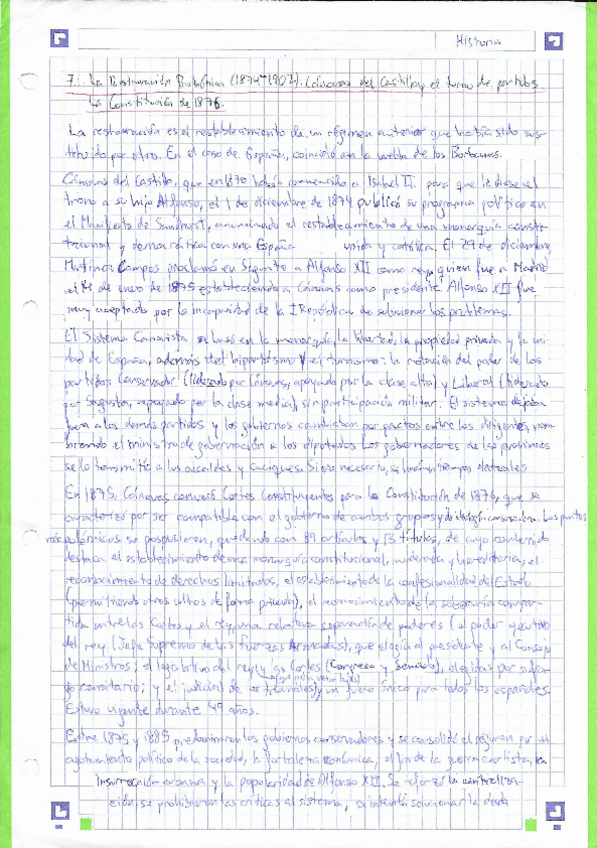 Historia
7. La Restauración Borbónica (1874-1902). Cánovas del Castillo y el turno de partidos.
La Constitución de 1876.
La restauración es el restablecimiento de un régimen anterior que había sido sus-
tituido por otro. En el caso de España, coincidió con la vuelta de los Borbones.
Cánovas del Castillo, que en 1870 había convencido a Isabel II para que le diese el
trono a su hijo Alfonso, el 1 de diciembre de 1874 publicó su programa político en
el Manifiesto de Sandhurst, anunciando el restablecimiento de una monarquía constitu-
cional y democrática con una España unida y católica. El 29 de diciembre,
Martínez Campos proclamó en Sagunto a Alfonso XII como rey, quien fue a Madrid
el 14 de enero de 1875 estableciendo a Cánovas como presidente. Alfonso XII fue
muy aceptado por la incapacidad de la I República de solucionar los problemas.
El Sistema Canovista se basó en la monarquía, la libertad, la propiedad privada y la uni-
dad de España, además del bipartidismo y el turnismo: la rotación del poder de los
partidos Conservador (liderado por Cánovas, apoyado por la clase alta) y Liberal (liderado
por Sagasta, apoyado por la clase media), sin participación militar. El sistema dejaba
fuera a los demás partidos y los gobiernos cambiaban por pactos entre los dirigentes, nom-
brando el ministro de gobernación a los diputados. Los gobernadores de las provincias
se lo transmitía a los alcaldes y caciques. Si era necesario, se hacían trampas electorales.
En 1875, Cánovas convocó Cortes Constituyentes para la Constitución de 1876, que se
caracterizó por ser compatible con el gobierno de ambos grupos y de ideología conservadora. Los puntos
más polémicos se pospusieron, quedando con 89 artículos y 13 títulos, de cuyo contenido
destaca el establecimiento de una monarquía constitucional, moderada y hereditaria, el
reconocimiento de derechos limitados, el establecimiento de la confesionalidad del Estado
(permitiendo otros cultos de forma privada), el reconocimiento de la soberanía compar-
tida entre las Cortes y el rey, una relativa separación de poderes (el poder ejecutivo
del rey (Jefe Supremo de las Fuerzas Armadas), que elegía al presidente y al Consejo
de Ministros; el legislativo del rey y las Cortes (Congreso y Senado), elegidas por sufra-
gio censitario; y el judicial de los tribunales) y un fuero único para todos los españoles.
Estuvo vigente durante 49 años.
Entre 1875 y 1885 predominaron los gobiernos conservadores y se consolidó el régimen por el
agotamiento político de la sociedad, la fortaleza económica, el fin de la guerra carlista, la
insurrección cubana y la popularidad de Alfonso XII. Se reforzó la centraliza-
ción, se prohibieron las críticas al sistema, se intentó solucionar la deuda